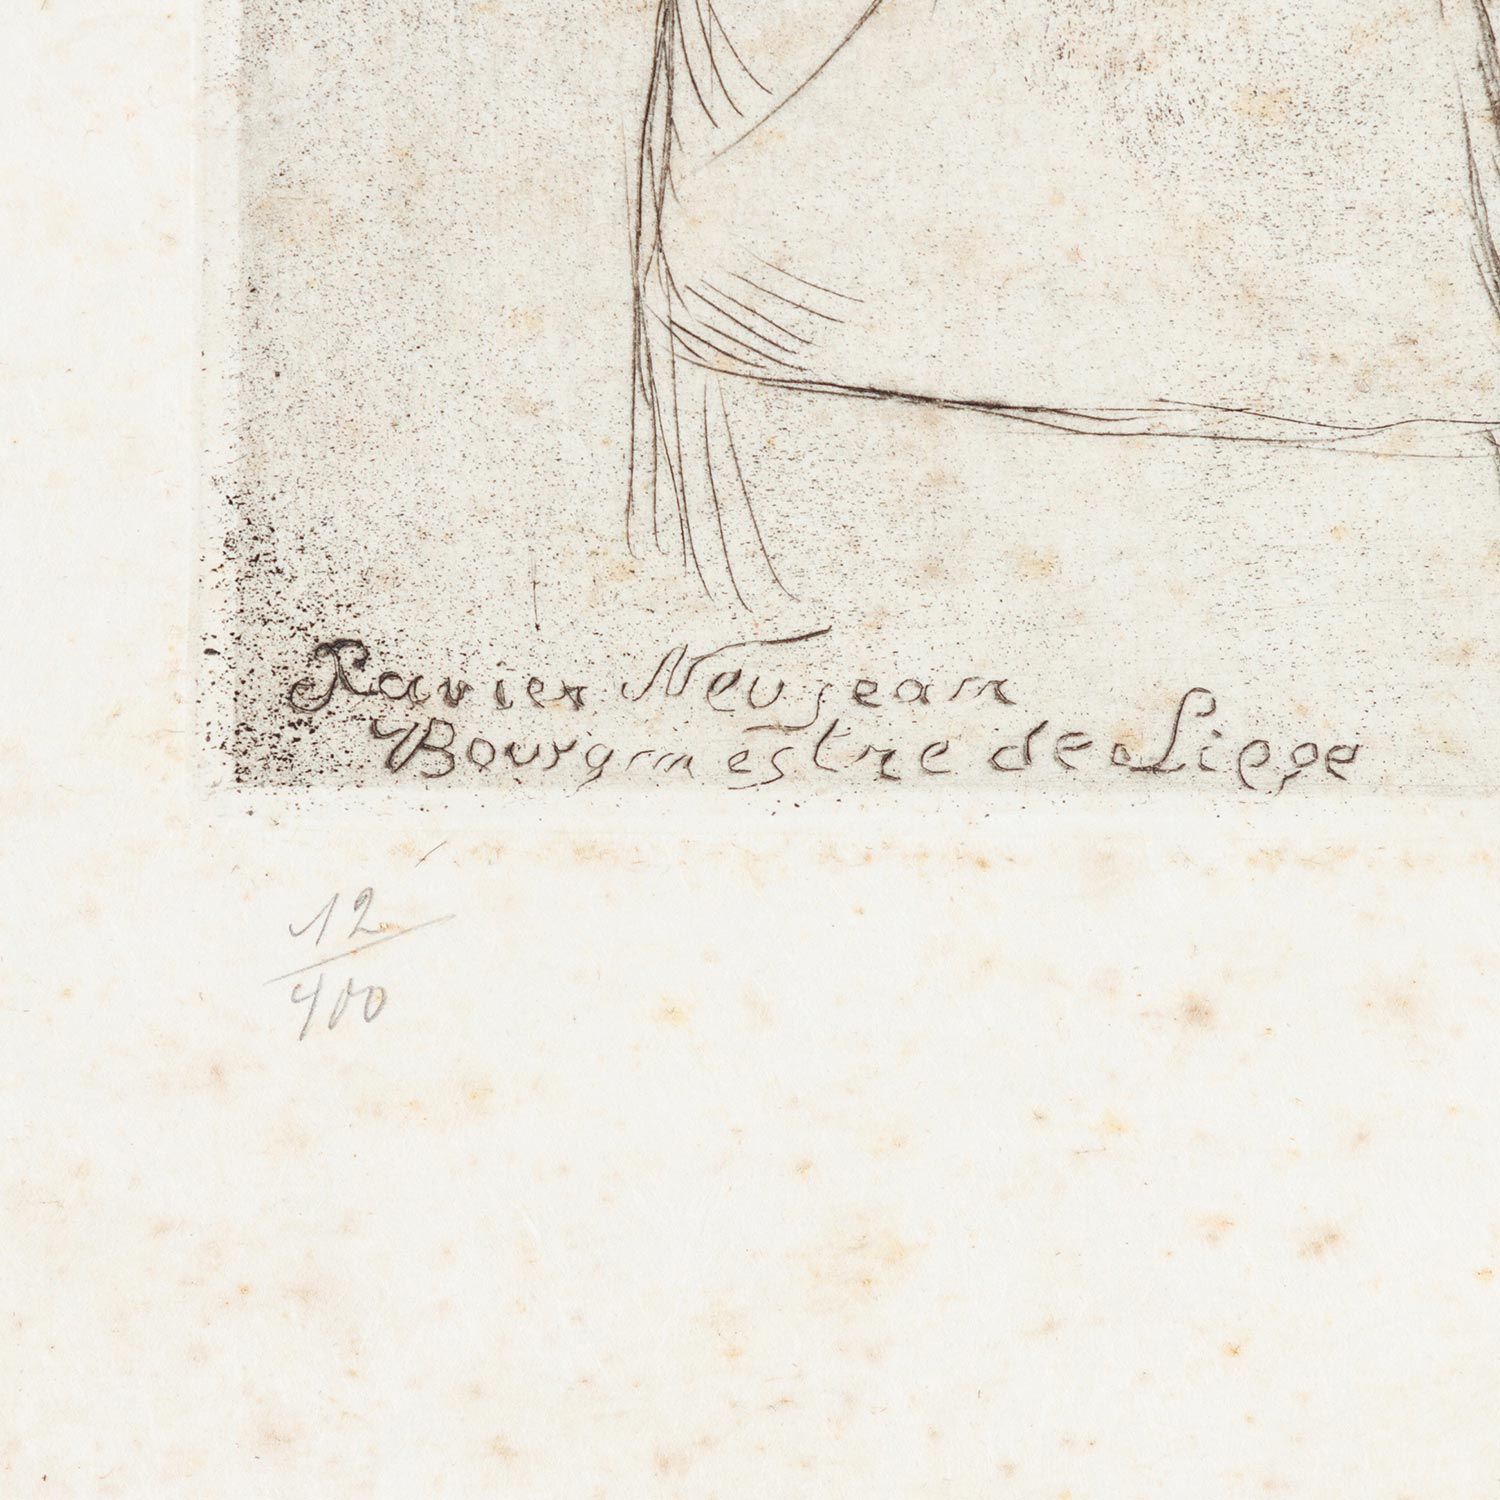 Xavier Neujean
Bourgmestre de Liege
12
400